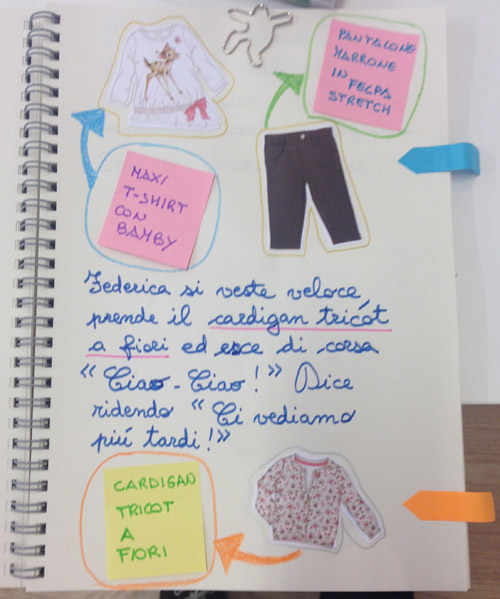 PANTALONE
MARRONE
IN FELPA
STRETCH
MAXI
T-SHIRT
CON
BAMBY
Federica si veste veloce,
prende il cardigan tricot
a fiori ed esce di corsa
“Ciao-Ciao!” Dice
ridendo “Ci vediamo
piú tardi!”
CARDIGAN
TRICOT
A
FIORI